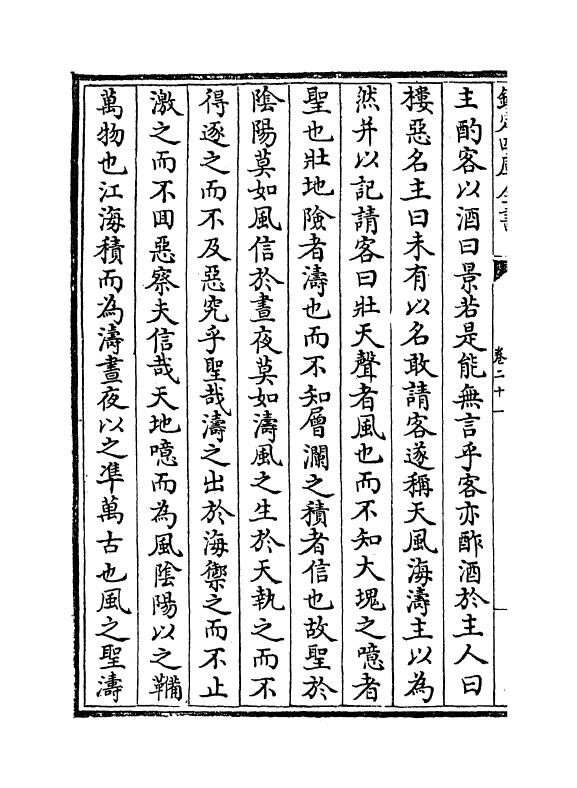 欽定四庫全書
卷二十一
主酌客以酒曰景若是能無言乎客亦酢酒於主人曰
樓惡名主曰未有以名敢請客遂稱天風海濤主以為
然并以記請客曰壯天聲者風也而不知大塊之噫者
聖也壯地險者濤也而不知層瀾之積者信也故聖於
陰陽莫如風信於晝夜莫如濤風之生於天執之而不
得逐之而不及惡究乎聖哉濤之出於海禦之而不止
激之而不回惡察夫信哉天地噫而為風陰陽以之鞴
萬物也江海積而為濤晝夜以之凖萬古也風之聖濤